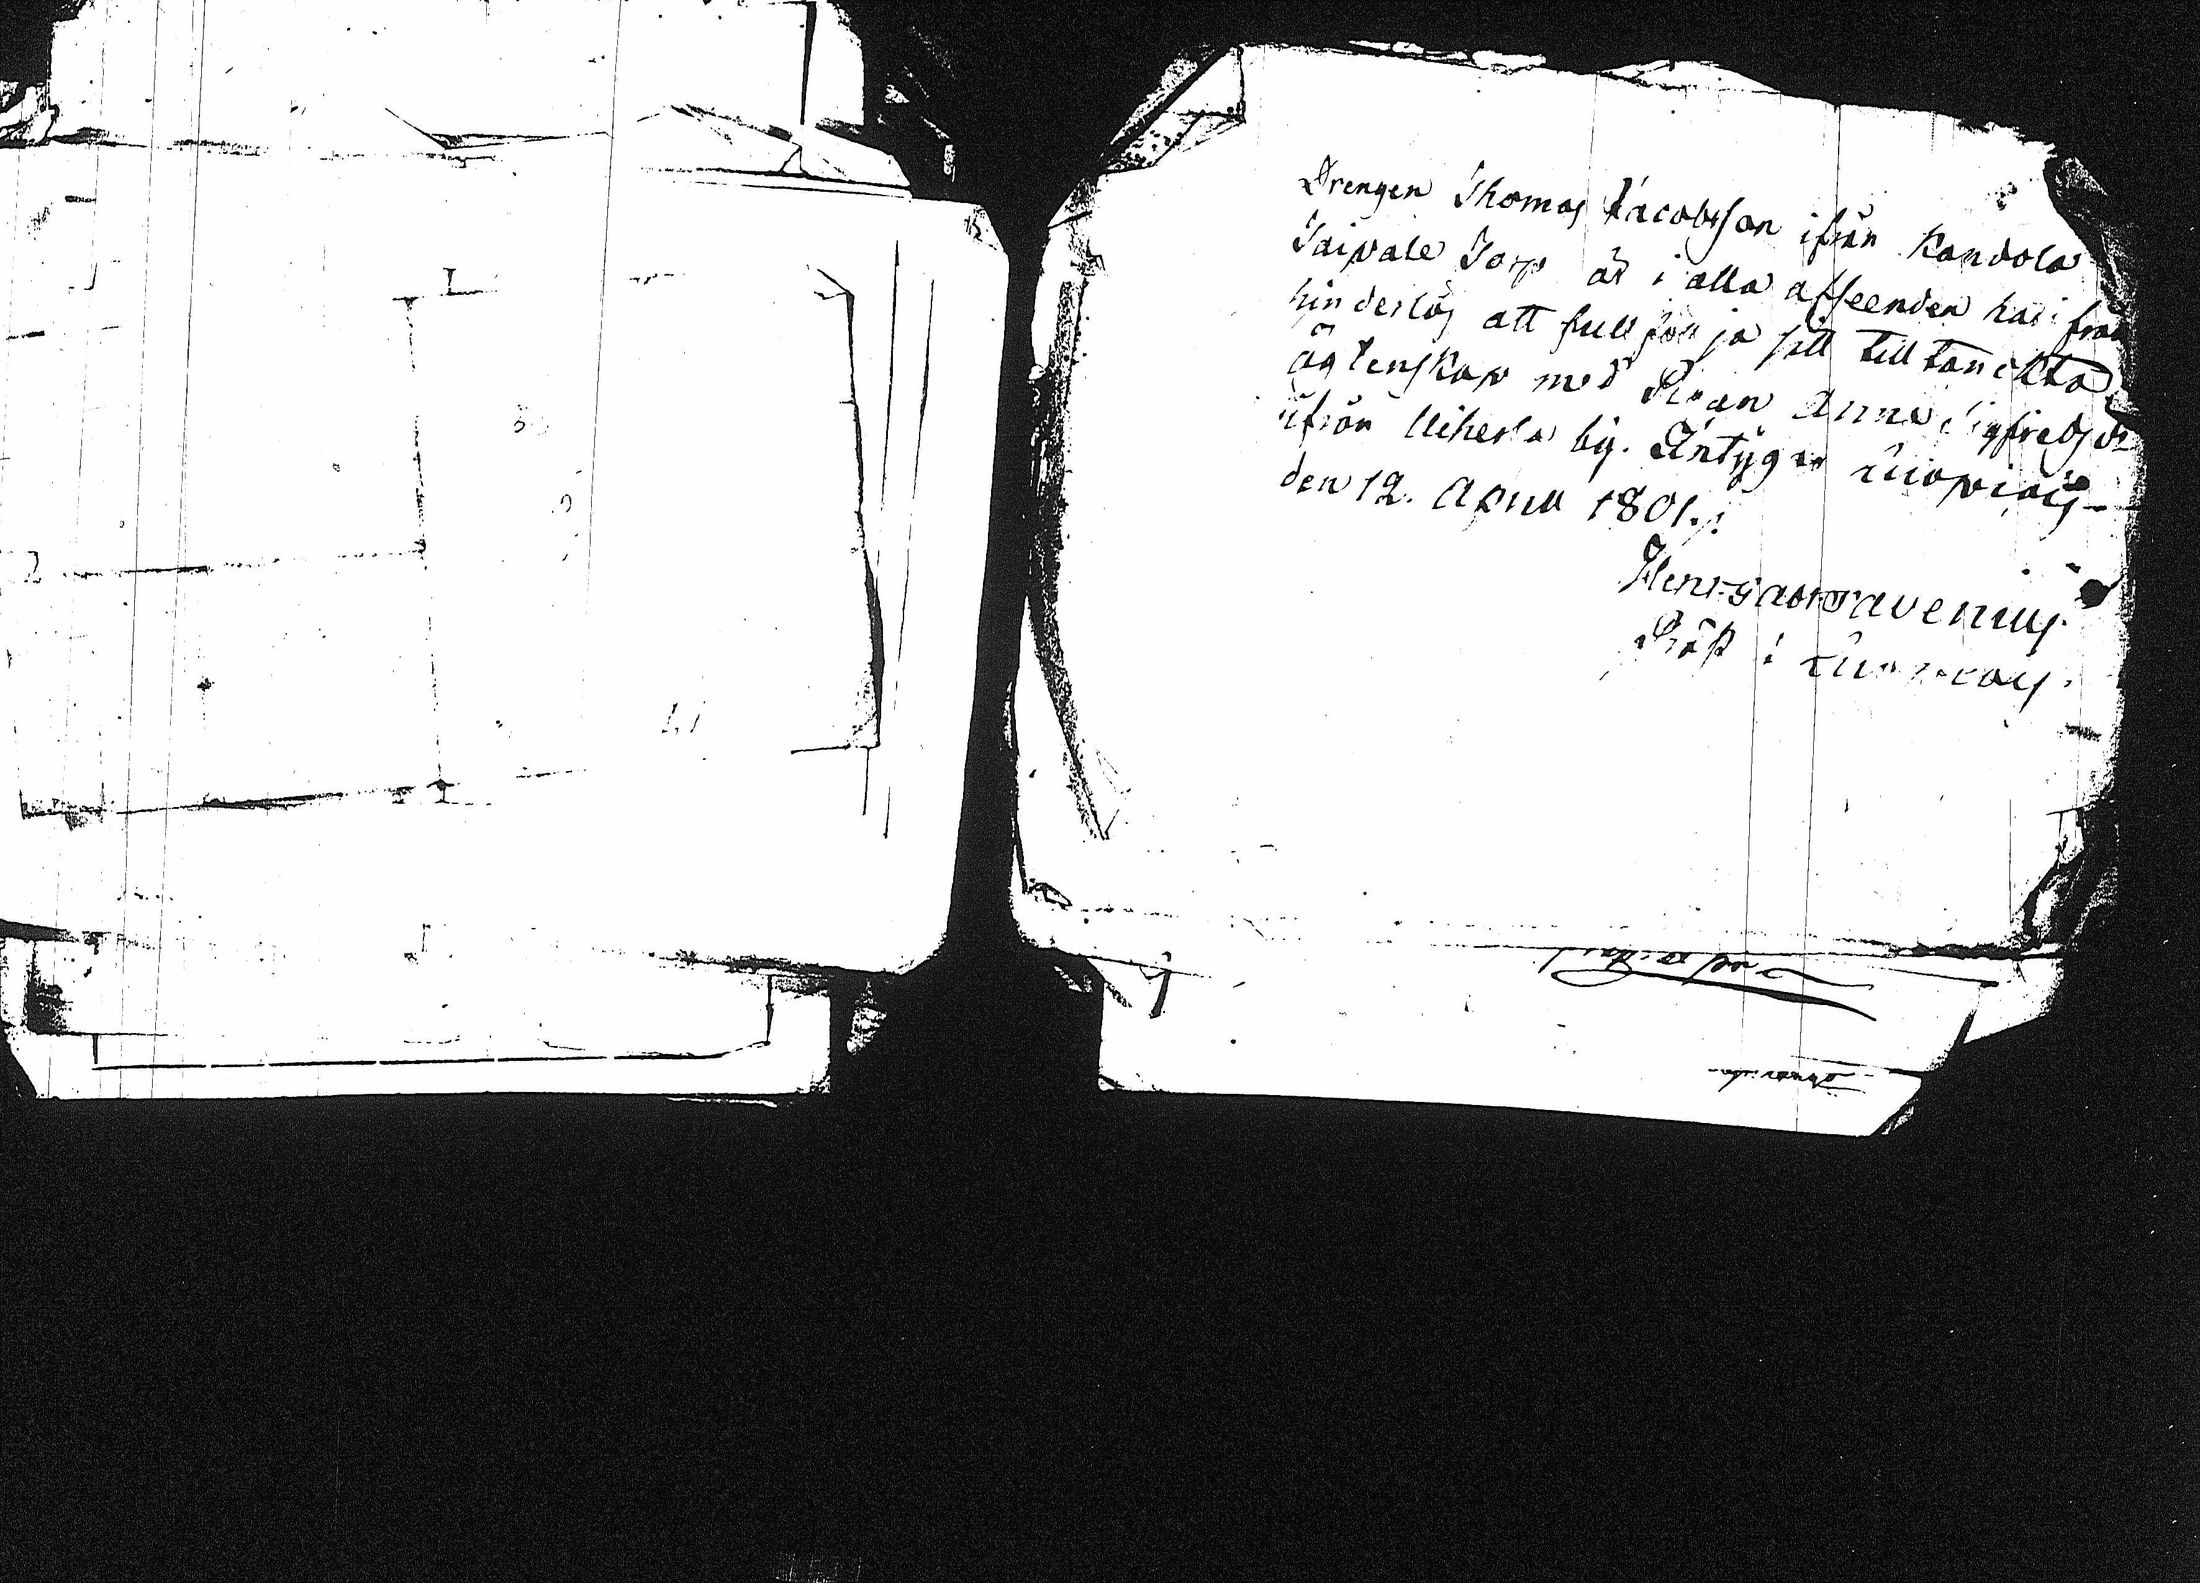 Drengen Thomas Jacobsson ifrån Kandola
Taipale Torp är i alla afseenden här ifrån
hinderlös att fullfölja sitt tilltänckta
ägtenskap med Pigan Anna Sigfredsdr
ifrån Uiherla by. Intygar
den 12. April 1801.
Henr: Gust: Avenius
Prost i